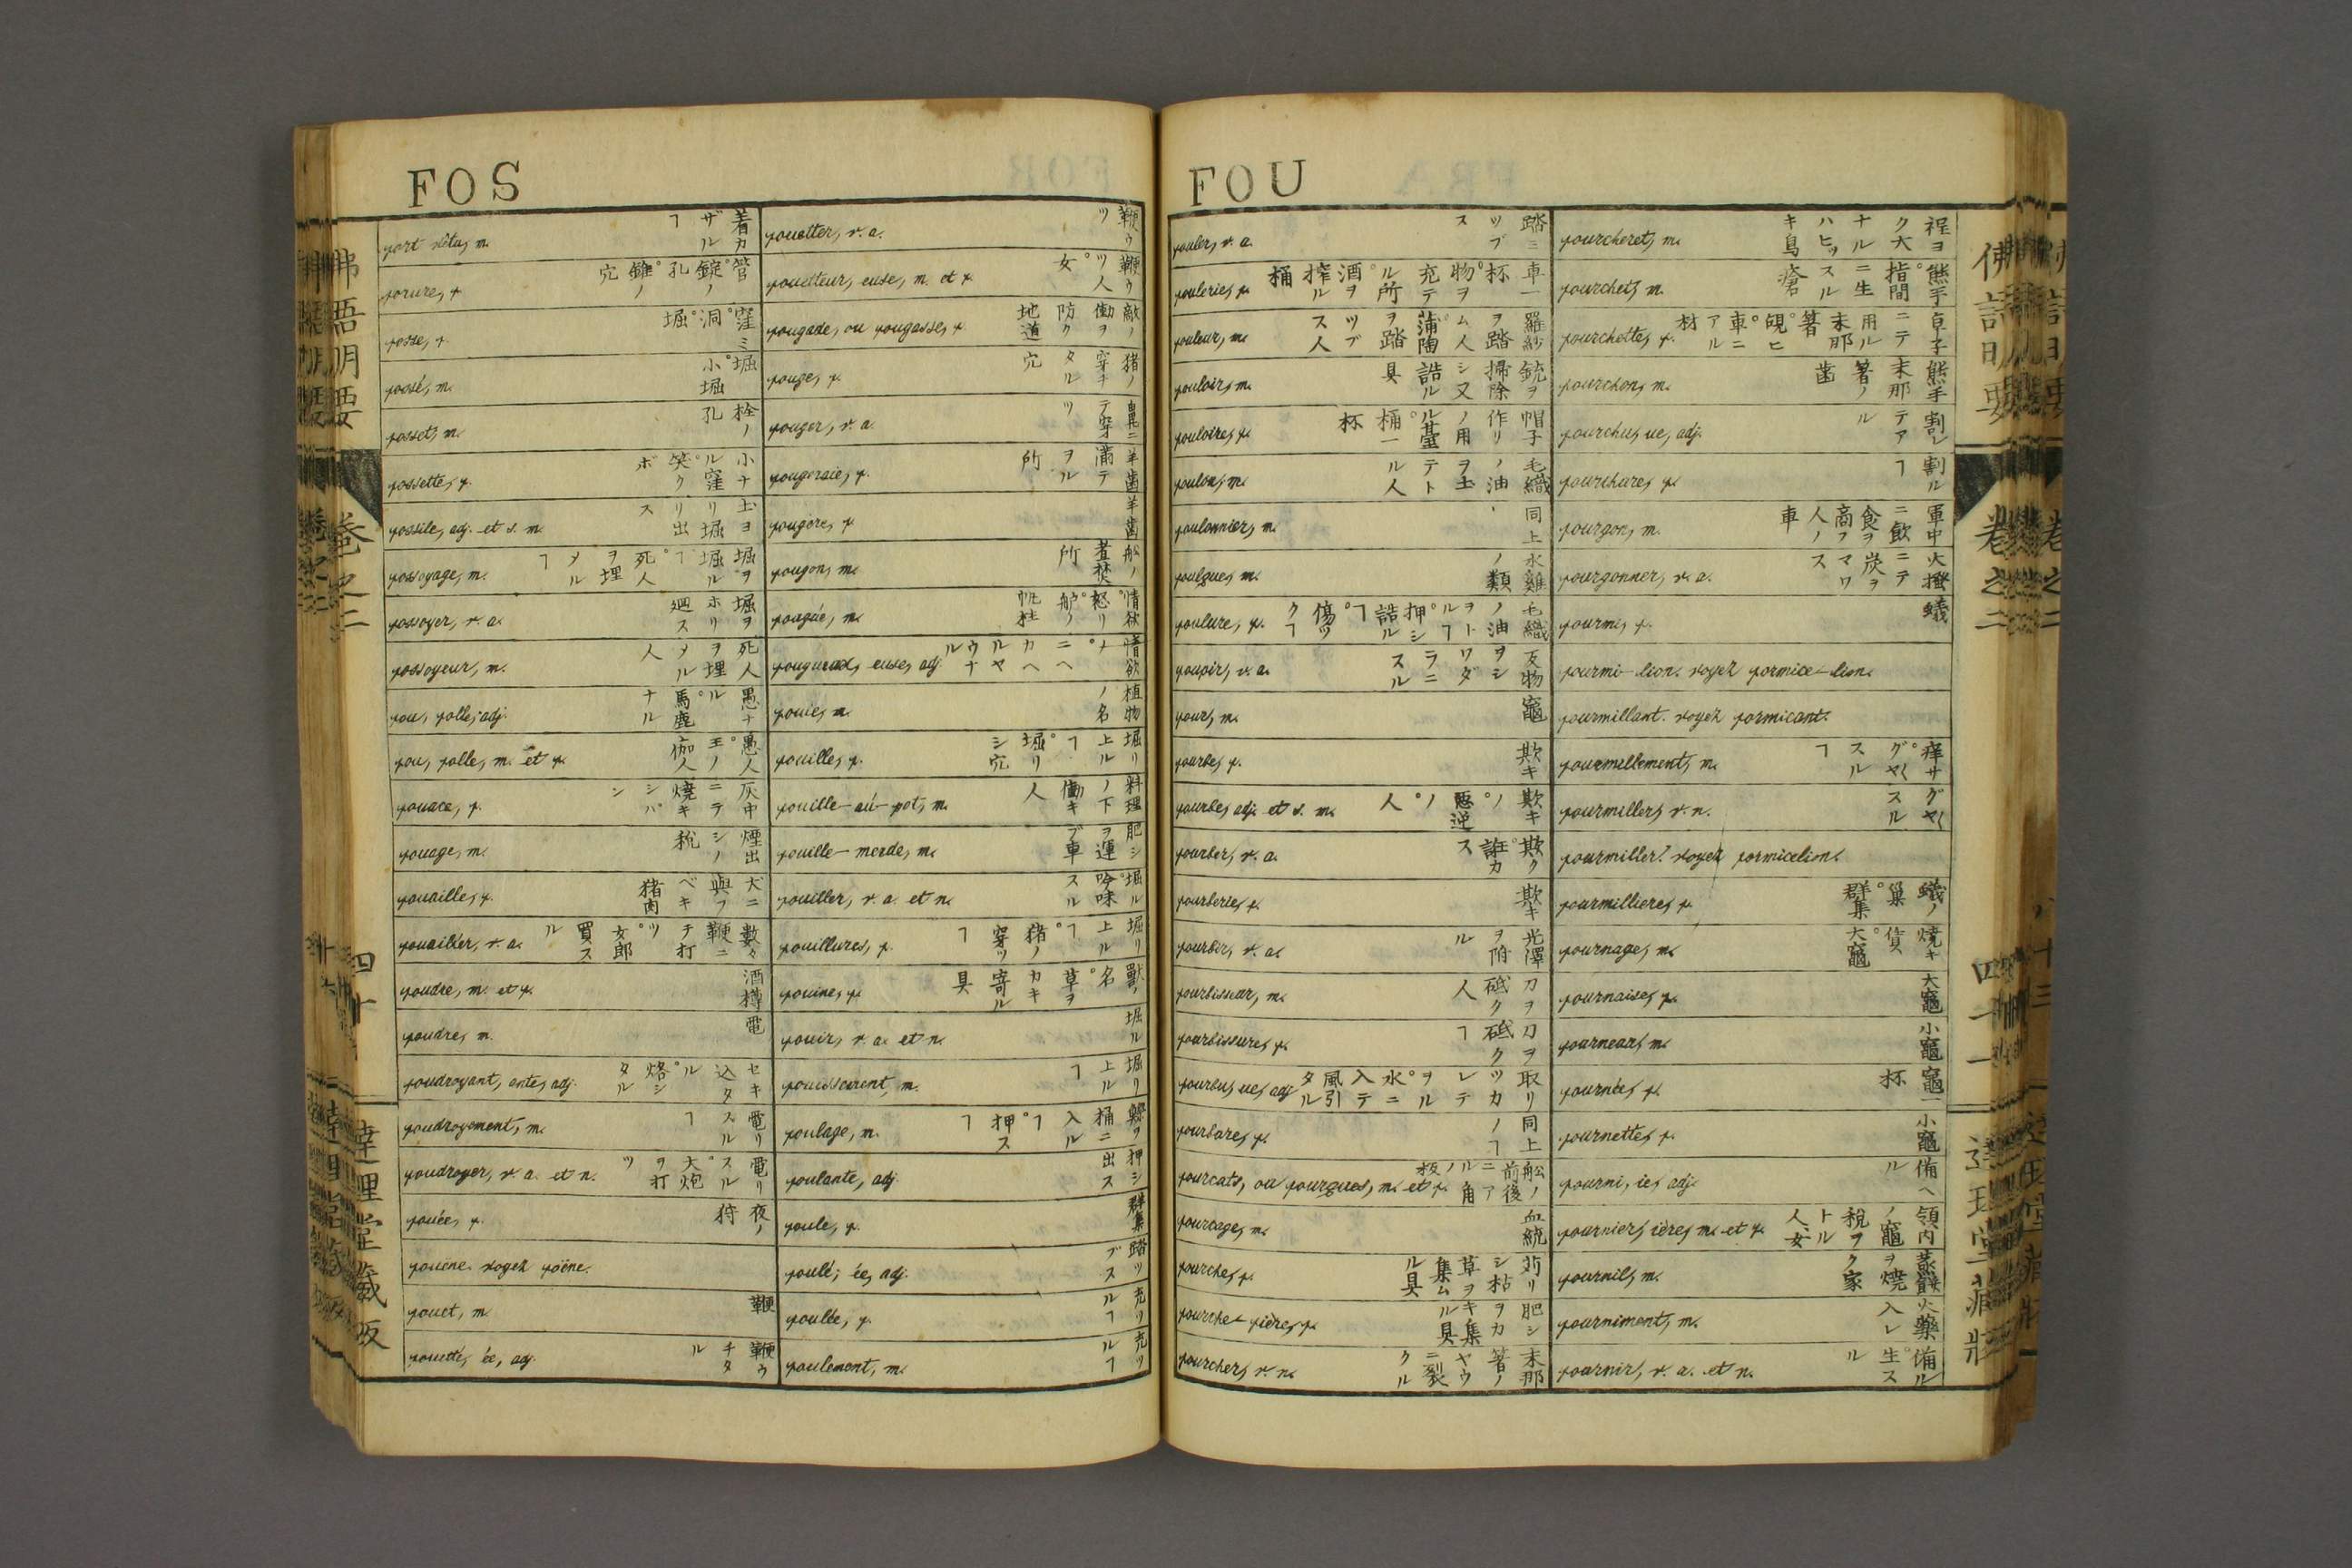 FOS
fort vêtu, m.
着カザルヿ
forure, f.
管。錠ノ孔。錐ノ穴
fosse, f.
窪ミ。洞。堀
fossé, m.
堀小堀
fosset, m.
栓ノ孔
fossette, f.
小ナル窪笑クボ
fossile, adj. et s. m.
土ヨリ堀リ出ス
fossoyage, m.
堀ヲ堀ルヿ。死人ヲ埋メルヿ
fossoyer, v. a.
堀ヲホリ廻ス
fossoyeur, m.
死人ヲ埋メル人
fou, folle, adj.
愚ナル。馬鹿ナル
fou, folle, m. et f.
愚人。王ノ伽人
fouace, f.
灰中ニテ焼キシパン
fouage, m.
煙出シノ税
fouaille, f.
犬ニ與フベキ猪肉
fouailler, v. a.
數々鞭ニテ打ツ。女郎買スル
foudre, m. et f.
酒樽
foudre, m.
電
foudroyant, ante, adj.
セキ込タル。烙シタル
foudroyement, m.
電リスルヿ
foudroyer, v. a. et n.
電リスル。大炮ヲ打ツ
fouée, f.
夜ノ狩
fouëne. voyez foëne.
fouet, m.
鞭
fouetté, ée, adj.
鞭ウチタル
fouetter, v. a.
鞭ウツ
fouetteur, euse, m. et f.
鞭ウツ人。女
fougade, ou fougasse, f.
敵ノ働ヲ防ク地道
fouge, f.
猪ノ穿チタル穴
fouger, v. a.
鼻ニテ穿ツ
fougeraie, f.
羊歯満テヲル所
fougère, f.
羊歯
fougon, m.
舩ノ煮焚所
fougue, m.
fougueux, euse, adj.
fouie, m.
植物ノ名
fouille, f.
堀リ上ルヿ。堀リシ穴
fouille-au-pot, m.
料理ノ下働キ人
fouille-merde, m.
肥シヲ運ブ車
fouiller, v. a. et n.
堀ル。吟味スル
fouillure, f.
堀リ上ルヿ。猪ノ穿ツヿ
fouine, f.
獸ノ名。草ヲカキ寄ル具
fouir, v. a. et n.
堀ル
fouissement, m.
堀リ上ルヿ
foulage, m.
桶ニ入ルヿ。押スヿ
foulante, adj.
押シ出ス
foule, f.
群集
foulé, ée, adj.
踏ツブス
foulée, f.
foulement, m.
佛語明要
巻之二
四十
達理堂蔵版
FOU
fouler, v. a.
踏ミツブス
foulerie, f.
車一杯。物ヲ充テル所。酒ヲ搾ル桶
fouleur, m.
羅紗ヲ踏ム人。蒲陶ヲ踏ツブス人
fouloir, m.
銃ヲ掃除シ又詰ル具
fouloire, f.
帽子作リノ用ル臺。桶一杯
foulon, m.
毛織ノ油ヲ土テトル人
foulonnier, m.
同上
foulque, m.
水雞ノ類
foulure, f.
毛織ノ油ヲトルヿ。押シ詰ルヿ。傷ツクヿ
foupir, v. a.
反物ヲシワダラニスル
four, m.
竈
fourbe, f.
欺キ
fourbe, adj. et s. m.
欺キノ。悪逆ノ。人
fourber, v. a.
欺ク。誑カス
fourberie, f.
欺キ
fourbir, v. a.
光澤ヲ附ル
fourbisseur, m.
刀ヲ砥ク人
fourbissure, f.
刀ヲ砥クヿ
fourbu, ue, adj.
取リツカレテヲル。水ニ入テ風引タル
fourbure, f.
同上ノヿ
fourcats, ou fourques, m. et f.
舩ノ前後ニアル角ノ板
fourcage, m.
血統
fourche, f.
苅リシ枯草ヲ集ムル具
fourche-fière, f.
肥シヲカキ集ル具
fourcher, v. n.
末那箸ノヤウニ裂クル
fourcheret, m.
程ヨク大ナルハヒツキ鳥
fourchet, m.
熊手。指間ニ生スル瘡
fourchette, f.
卓子ニテ用ル末那箸。蜆ヒ。車ニアル材
fourchon, m.
熊手末那箸ノ歯
fourchu, ue, adj.
割レテアル
fourchure, f.
割ルヿ
fourgon, m.
軍中ニ飲食ヲ商フ人ノ車
fourgonner, v. a.
火掻ニテ炭ヲマワス
fourmi, f.
蟻
fourmi-lion. voyez formica-lion.
fourmillant. voyez formicant.
fourmillement, m.
痒サ。グヤ〱スルヿ
fourmiller, v. n.
グヤ〱スル
fourmiller. voyez formicelion.
fourmilliere, f.
蟻ノ巣。群集
fournage, m.
焼キ賃。大竈
fournaise, f.
大竈
fourneau, m.
小竈
fournée, f.
竈一杯
fournette, f.
小竈
fourni, ie, adj.
備ヘル
fournier, ière, m. et f.
領内ノ竈税ヲトル人。女
fournil, m.
蒸餅ヲ焼ク家
fourniment, m.
火藥入レ
fournir, v. a. et n.
備ル。生スル
佛語明要
巻之二
四十一
達理堂蔵版